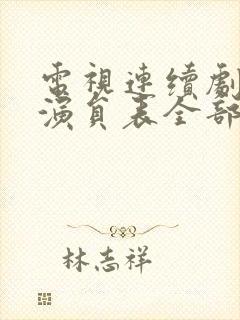 電視連續劇
演員表全部
林志祥